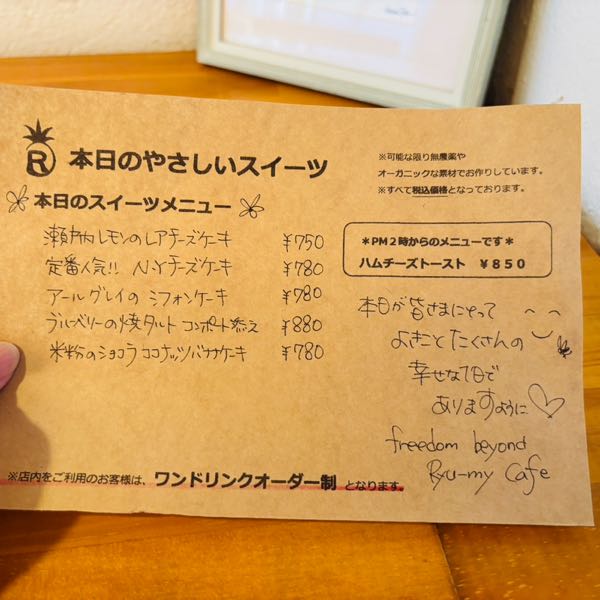 R 本日のやさしいスイーツ
※可能な限り無農薬や
オーガニックな素材でお作りしています。
※すべて税込価格となっております。
本日のスイーツメニュー
瀬戸内レモンのレアチーズケーキ ¥750
定番人気!! N.Yチーズケーキ ¥780
アールグレイのシフォンケーキ ¥780
ブルーベリーの焼タルト コンポート添え ¥880
米粉のショコラココナッツバナナケーキ ¥780
*PM2時からのメニューです*
ハムチーズトースト ¥850
本日が皆さまにとって
よきことたくさんの
幸せな1日で
ありますように
freedom beyond
Ryu-my Cafe
※店内をご利用のお客様は、ワンドリンクオーダー制となります。